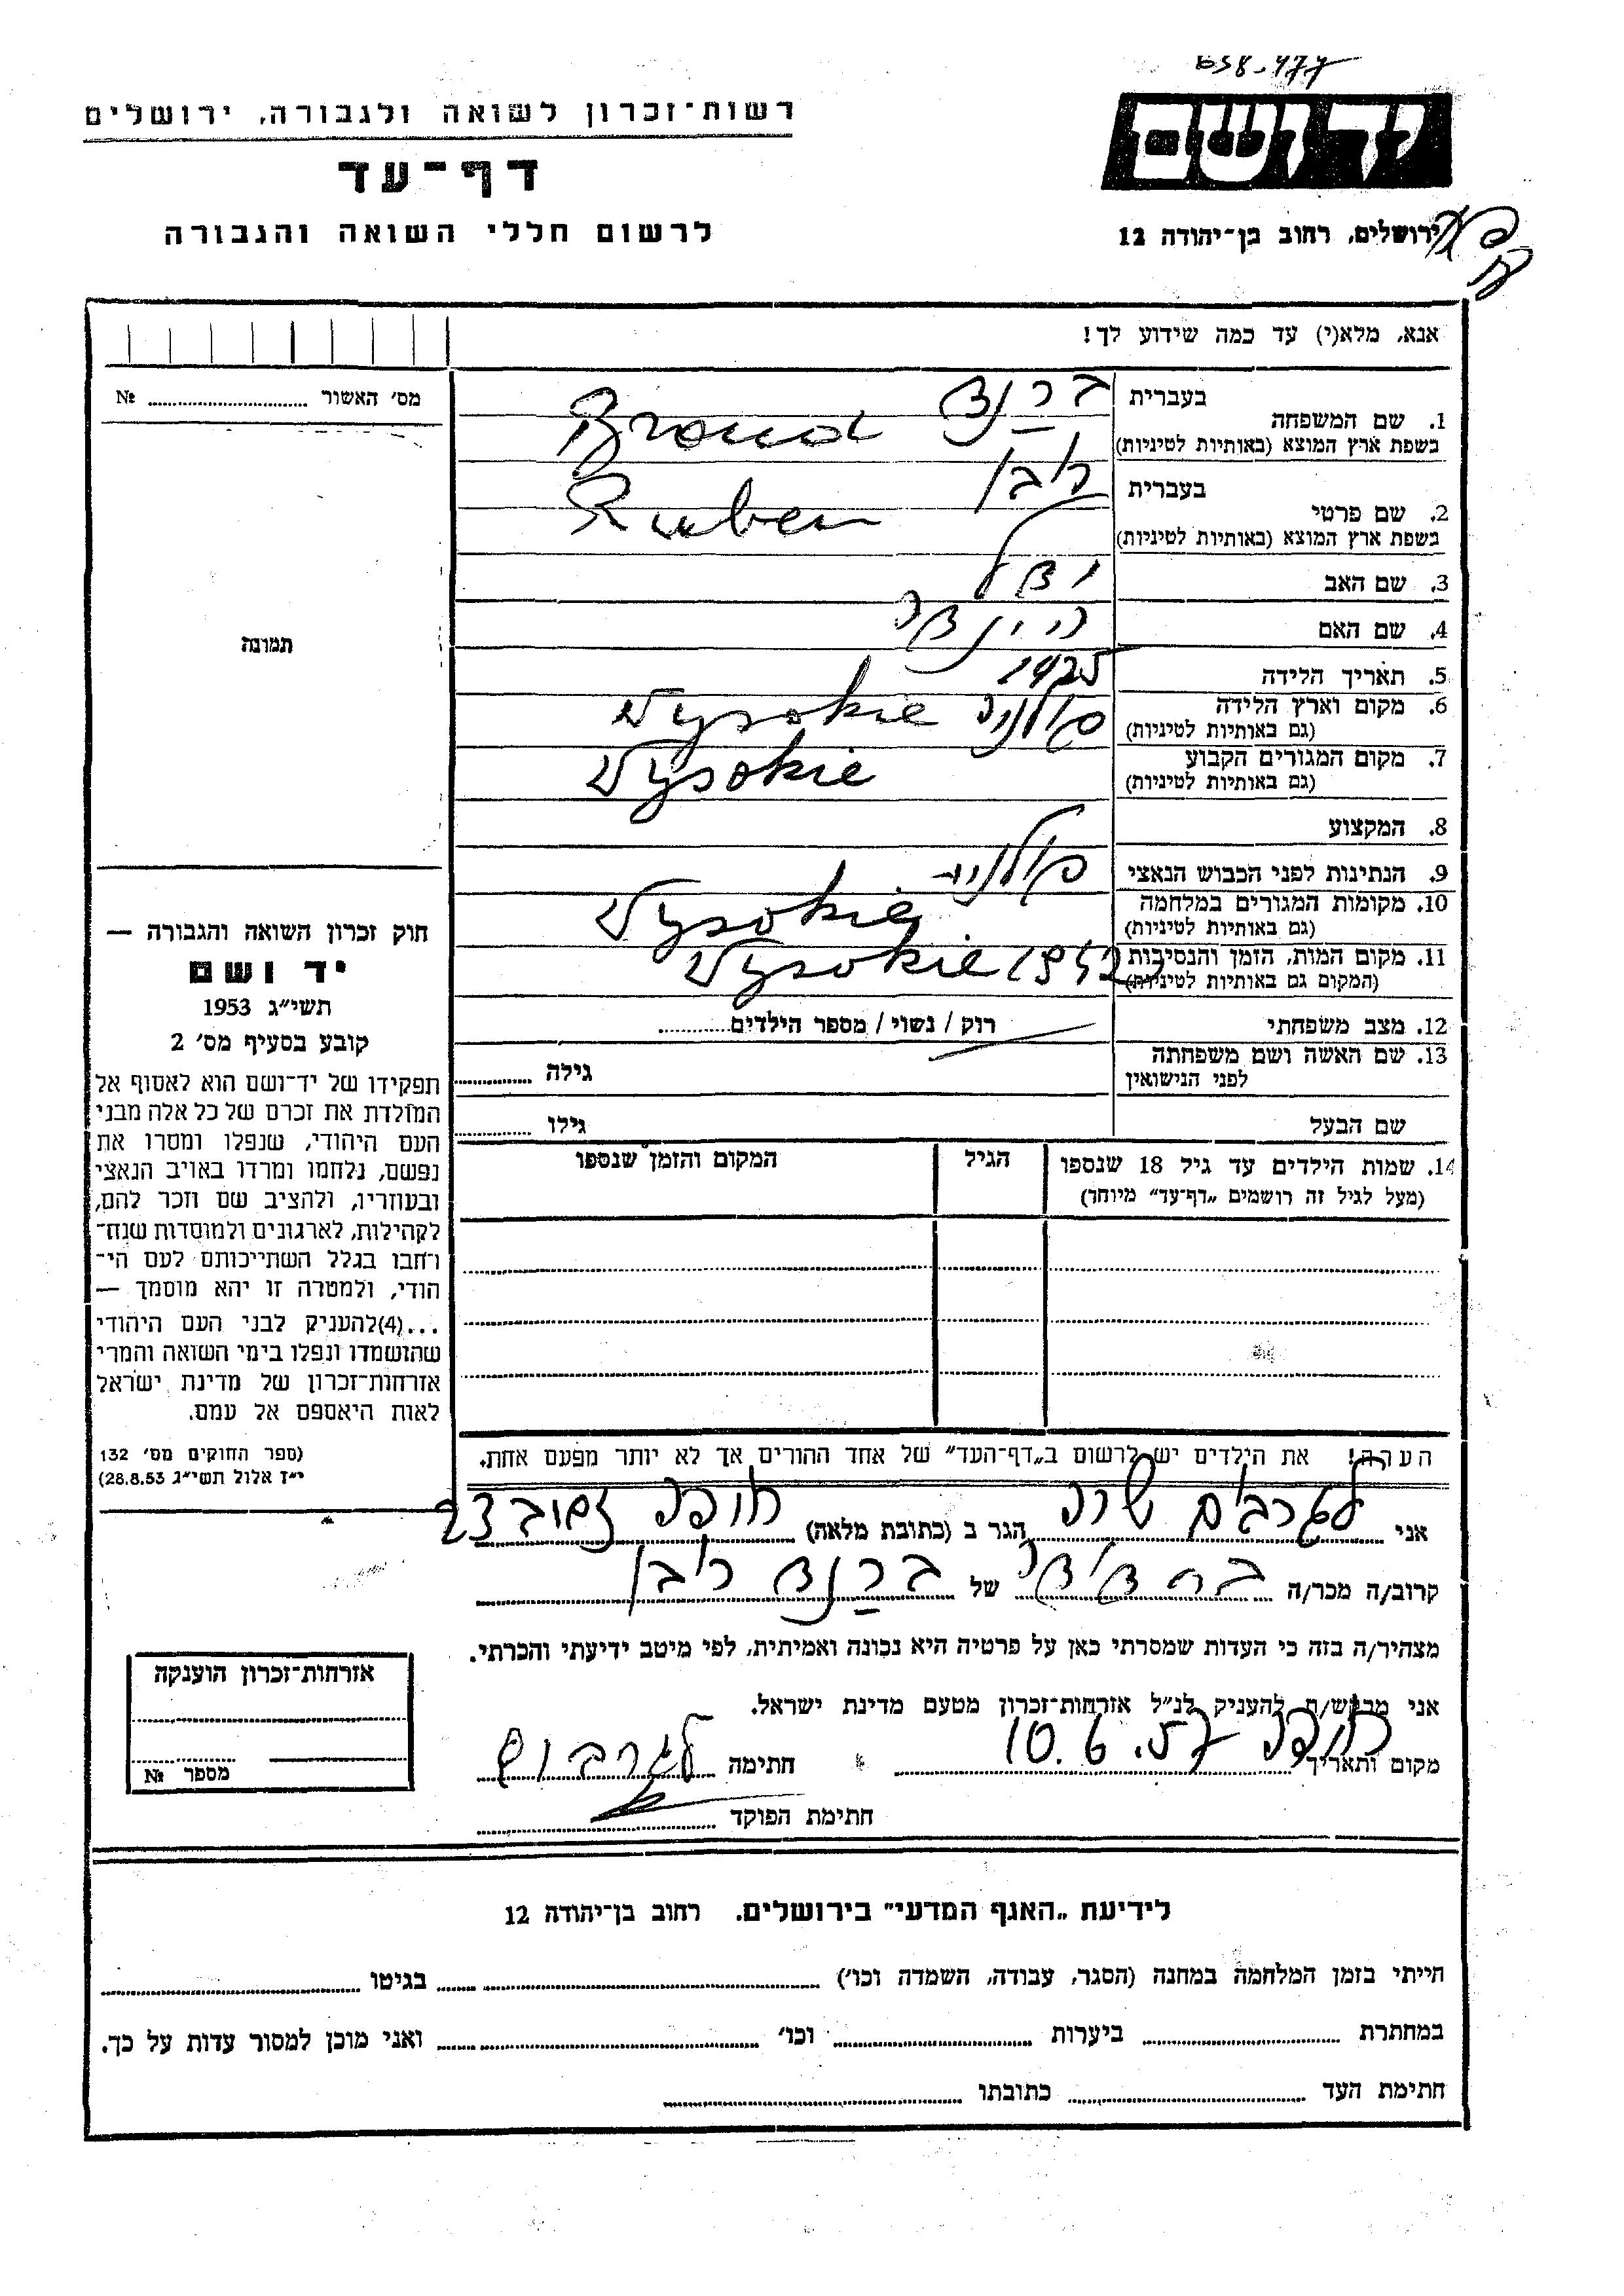 658.477
רשות-זכרון לשואה ולגבורה, ירושלים
דף-עד
לרשום חללי השואה והגבורה
ידושם
ירושלים, רחוב בן-יהודה 12
אנא, מלא(י) עד כמה שידוע לך!
מס׳ האשור № 
תמונה
חוק זכרון השואה והגבורה —
יד ושם
תשי״ג 1953
קובע בסעיף מס׳ 2
תפקידו של יד-ושם הוא לאסוף אל
המולדת את זכרם של כל אלה מבני
העם היהודי, שנפלו ומסרו את
נפשם, נלחמו ומרדו באויב הנאצי
ובעוזריו, ולהציב שם וזכר להם,
לקהילות, לארגונים ולמוסדות שנח-
רחבו בגלל השתייכותם לעם הי-
הודי, ולמטרה זו יהא מוסמך —
...(4)להעניק לבני העם היהודי
שהושמדו ונפלו בימי השואה והמרי
אזרחות-זכרון של מדינת ישראל
לאות היאספם אל עמם.
(ספר החוקים מס׳ 132
י״ז אלול תשי״ג 28.8.53)
בעברית ברנד
1. שם המשפחה
בשפת ארץ המוצא (באותיות לטיניות) Brond
בעברית רובן
2. שם פרטי
בשפת ארץ המוצא (באותיות לטיניות) Ruben
3. שם האב
4. שם האם
5. תאריך הלידה 1925
6. מקום וארץ הלידה
(גם באותיות לטיניות) פולניה Wysokie
7. מקום המגורים הקבוע
(גם באותיות לטיניות) Wysokie
8. המקצוע
9. הנתינות לפני הכבוש הנאצי פולנית
10. מקומות המגורים במלחמה
(גם באותיות לטיניות) Wysokie
11. מקום המות, הזמן והנסיבות
(המקום גם באותיות לטיניות) Wysokie 1942
12. מצב משפחתי רוק / נשוי / מספר הילדים
13. שם האשה ושם משפחתה
לפני הנישואין גילה
שם הבעל גילו
14. שמות הילדים עד גיל 18 שנספו הגיל המקום והזמן שנספו
(מעל לגיל זה רושמים „דף-עד״ מיוחד)
הערה! את הילדים יש לרשום ב„דף-העד״ של אחד ההורים אך לא יותר מפעם אחת.
אני שרה הגר ב (כתובת מלאה) חיפה
קרוב/ה מכר/ה של ברנד רובן
מצהיר/ה בזה כי העדות שמסרתי כאן על פרטיה היא נכונה ואמיתית, לפי מיטב ידיעתי והכרתי.
אני מבקש/ת להעניק לנ״ל אזרחות-זכרון מטעם מדינת ישראל.
מקום ותאריך חיפה 10.6.57 חתימה
חתימת הפוקד
אזרחות-זכרון הוענקה
מספר №
לידיעת „האגף המדעי״ בירושלים. רחוב בן-יהודה 12
הייתי בזמן המלחמה במחנה (הסגר, עבודה, השמדה וכו׳) בגיטו
במחתרת ביערות וכו׳ ואני מוכן למסור עדות על כך.
חתימת העד כתובתו